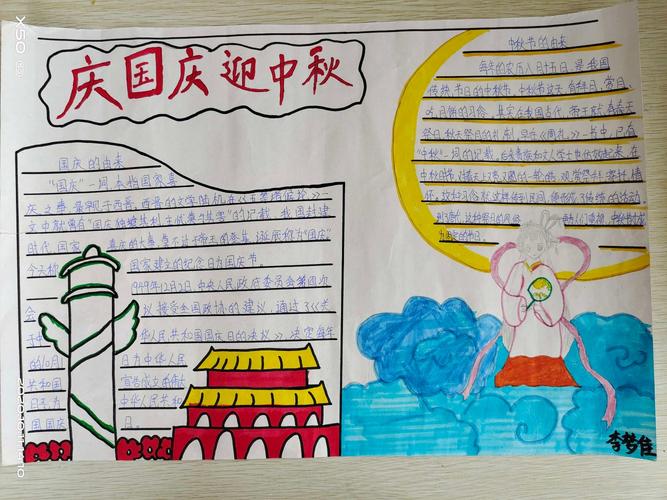 庆国庆迎中秋
中秋节的由来
每年的农历八月十五日,是我国
传统节日的中秋节。中秋节这天,有拜月、赏月、
吃月饼的习俗。其实在我国古代,帝王就有春天
祭日,秋天祭月的礼制,早在《周礼》一书中,已有
"中秋"一词的记载。后来贵族和文人学士也仿效起来,在
中秋时节,对着天上又亮又圆的一轮皓月,观赏祭拜,寄托情
怀,这种习俗就这样传到民间,便形成了传统的活动。
为固定的节日。
国庆的由来
"国庆"一词,本指国家喜
庆之事,最早见于西晋。西晋的文学陆机在《五等诸侯论》一
文中就曾有"国庆独飨其利,主忧莫与其害"的记载,我国封建
时代,国家喜庆的大事,莫不过于帝王的登基、诞辰称为"国庆"
今天称国家建立的纪念日为国庆节。
1949年12月2日,中央人民政府委员会第四次
会议接受全国政协的建议,通过了《关
于中华人民共和国国庆日的决议》,决定每年
的10月1日为中华人民
共和国宣告成立的伟大
日子,为中华人民共和
国国庆日。
李梦佳
X50